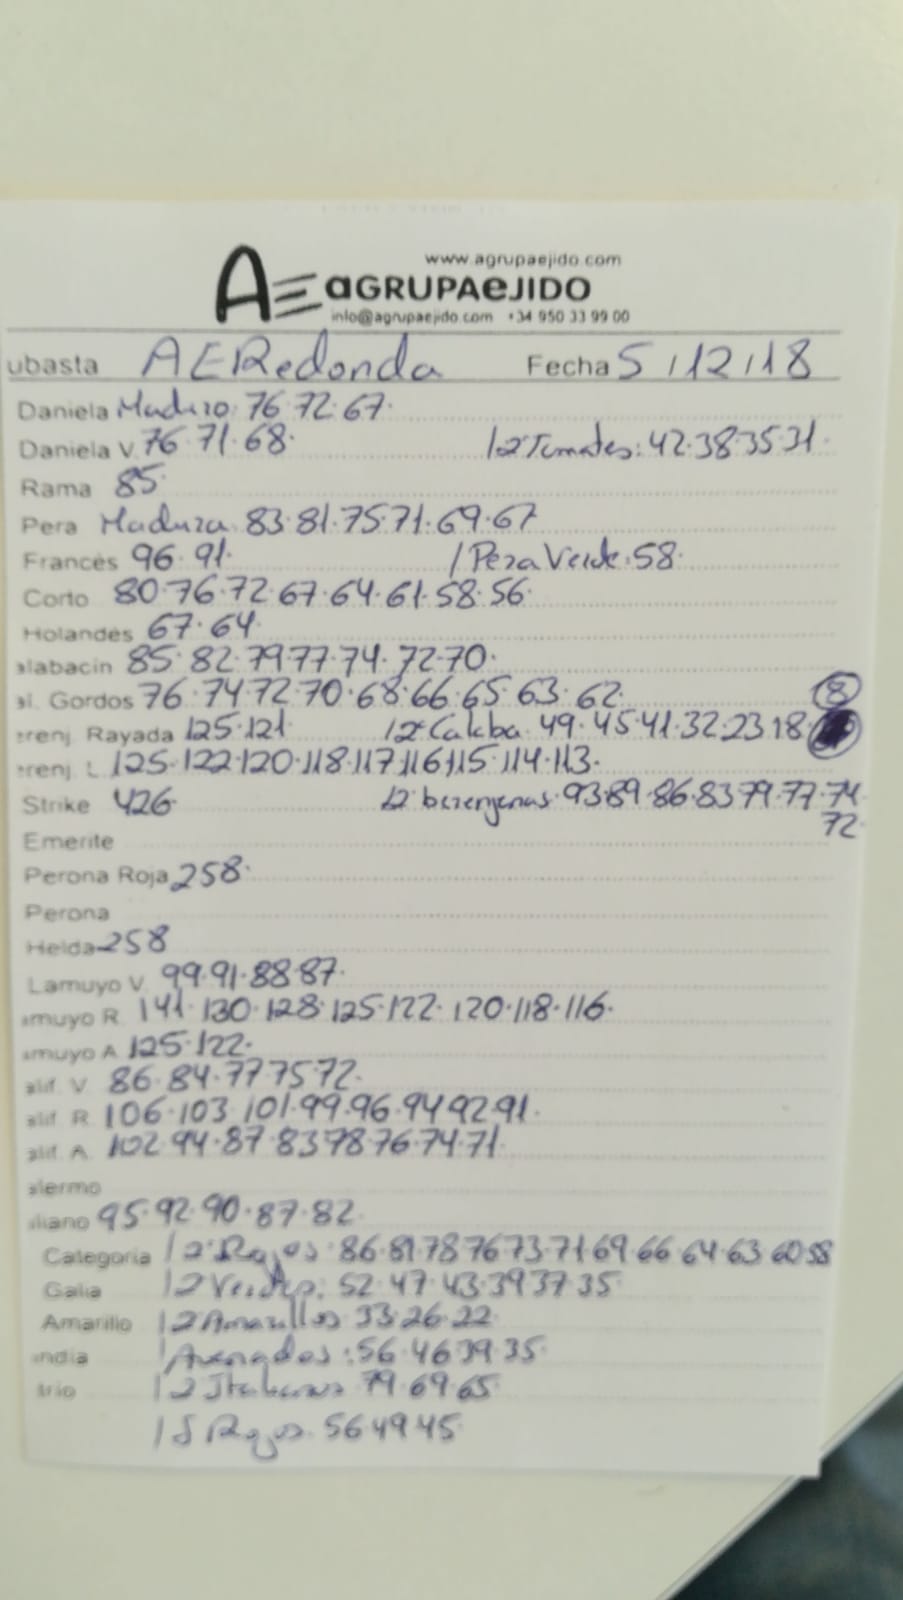 www.agrupaejido.com
AE aGRUPAeJIDO
info@agrupaejido.com +34 950 33 99 00
ubasta AERedonda Fecha 5/12/18
Daniela Maduro: 76 72·67·
Daniela V. 76·71·68· /2ªTomates: 42·38·35·31·
Rama 85·
Pera Madura 83·81·75·71·69·67
Francés 96·91· / Pera Verde·58·
Corto 80·76·72·67·64·61·58·56·
Holandés 67·64·
alabacín 85·82·79·77·74·72·70·
al. Gordos 76·74·72·70·68·66·65·63·62· 8
erenj. Rayada 125·121 /2ª Calaba. 49·45·41·32·23·18·
erenj. L 125·122·120·118·117·116·115·114·113·
Strike 426· /2 berenjenas 93·89·86·83·79·77·74·
72·
Emerite
Perona Roja 258·
Perona
Helda 258
Lamuyo V. 99·91·88·87·
amuyo R. 141·130·128·125·122·120·118·116·
amuyo A. 125·122·
alif. V. 86·84·77·75·72·
alif. R. 106·103·101·99·96·94·92·91·
alif. A. 102·94·87·83·78·76·74·71·
alermo
aliano 95·92·90·87·82·
Categoría / 2ª Rojos: 86·81·78·76·73·71·69·66·64·63·60·58
Galia / 2 Verdes: 52·47·43·39·37·35·
Amarillo / 2 Amarillos 33·26·22·
andía / Asurcados: 56·46·39·35·
trio / 2 Italianos 79·69·65·
/ S Rojos 56·49·45·